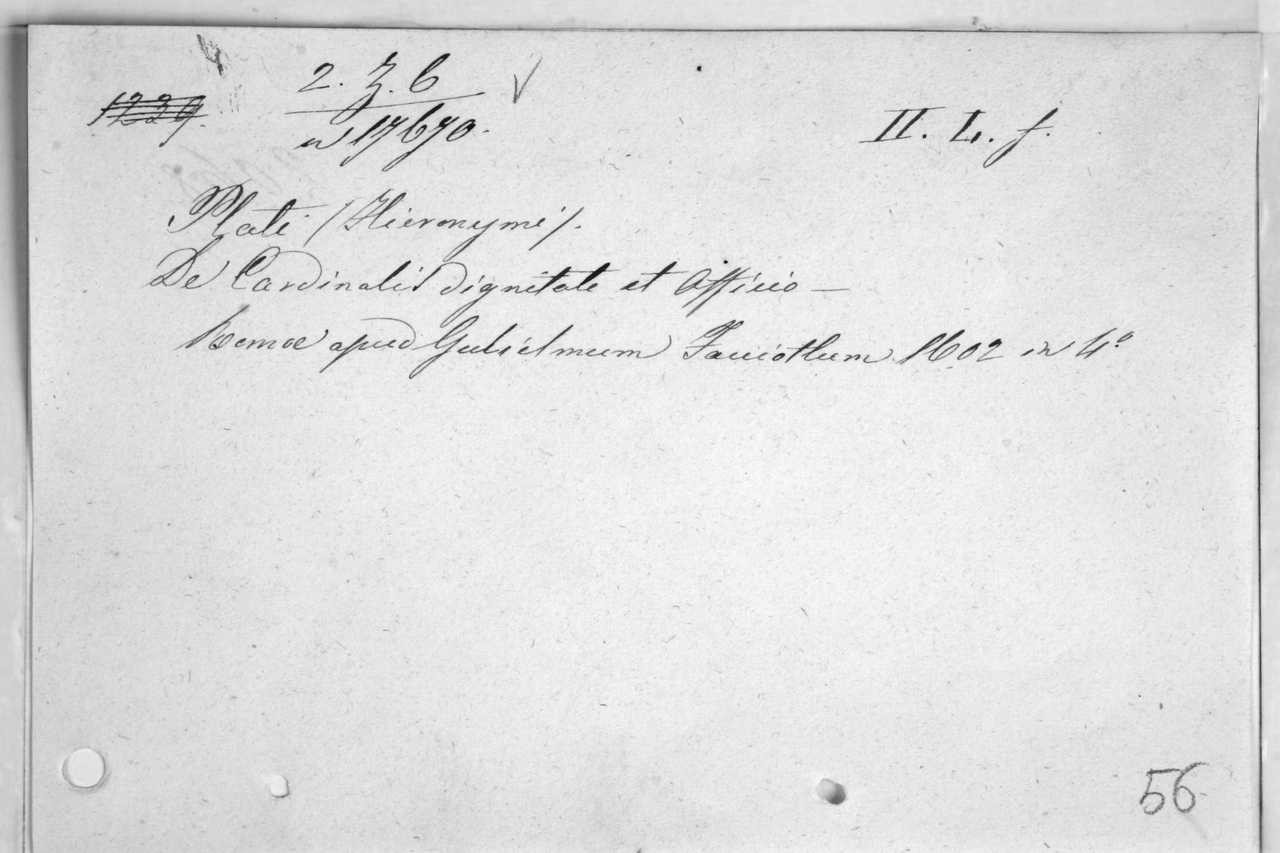 1239.
2. Z. 6
n 17670.
II. L. f.
Plati (Hieronymi).
De Cardinalis dignitate et Officio —
Romæ apud Gulielmum Facciottum 1602 in 4°
56